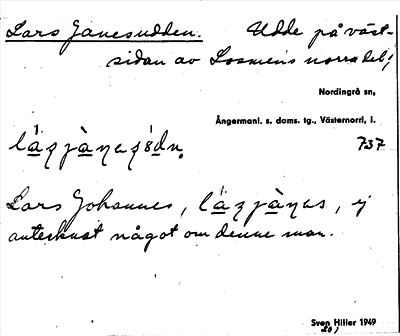 Lars Janesudden. Udde på väst-
sidan av Losmens norra del,
Nordingrå sn,
Ångermanl. s. doms. tg., Västernorrl, l.
737
Lars Johannes, ej
antecknat något om denne man.
Sven Hiller 1949